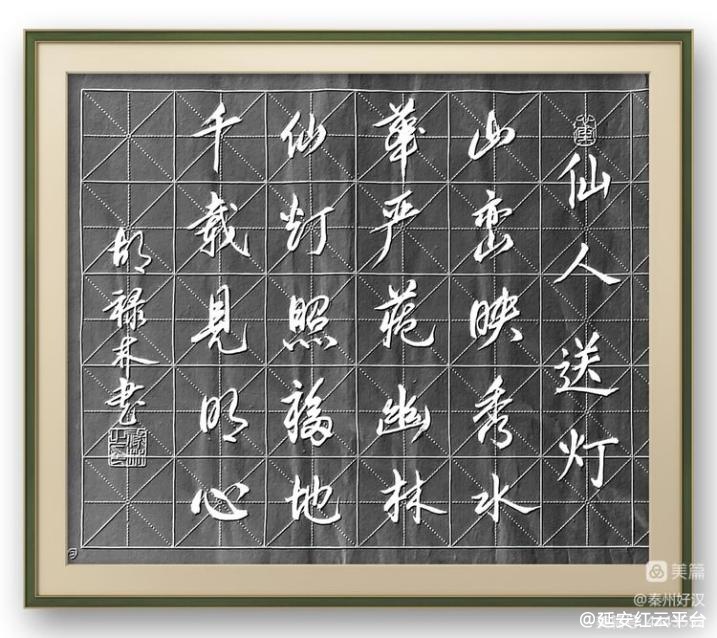 仙人送灯
山峦映秀水
華严苑幽林
仙灯照福地
千载見明心
胡禄林书
美篇
@秦州好汉
@延安红云平台